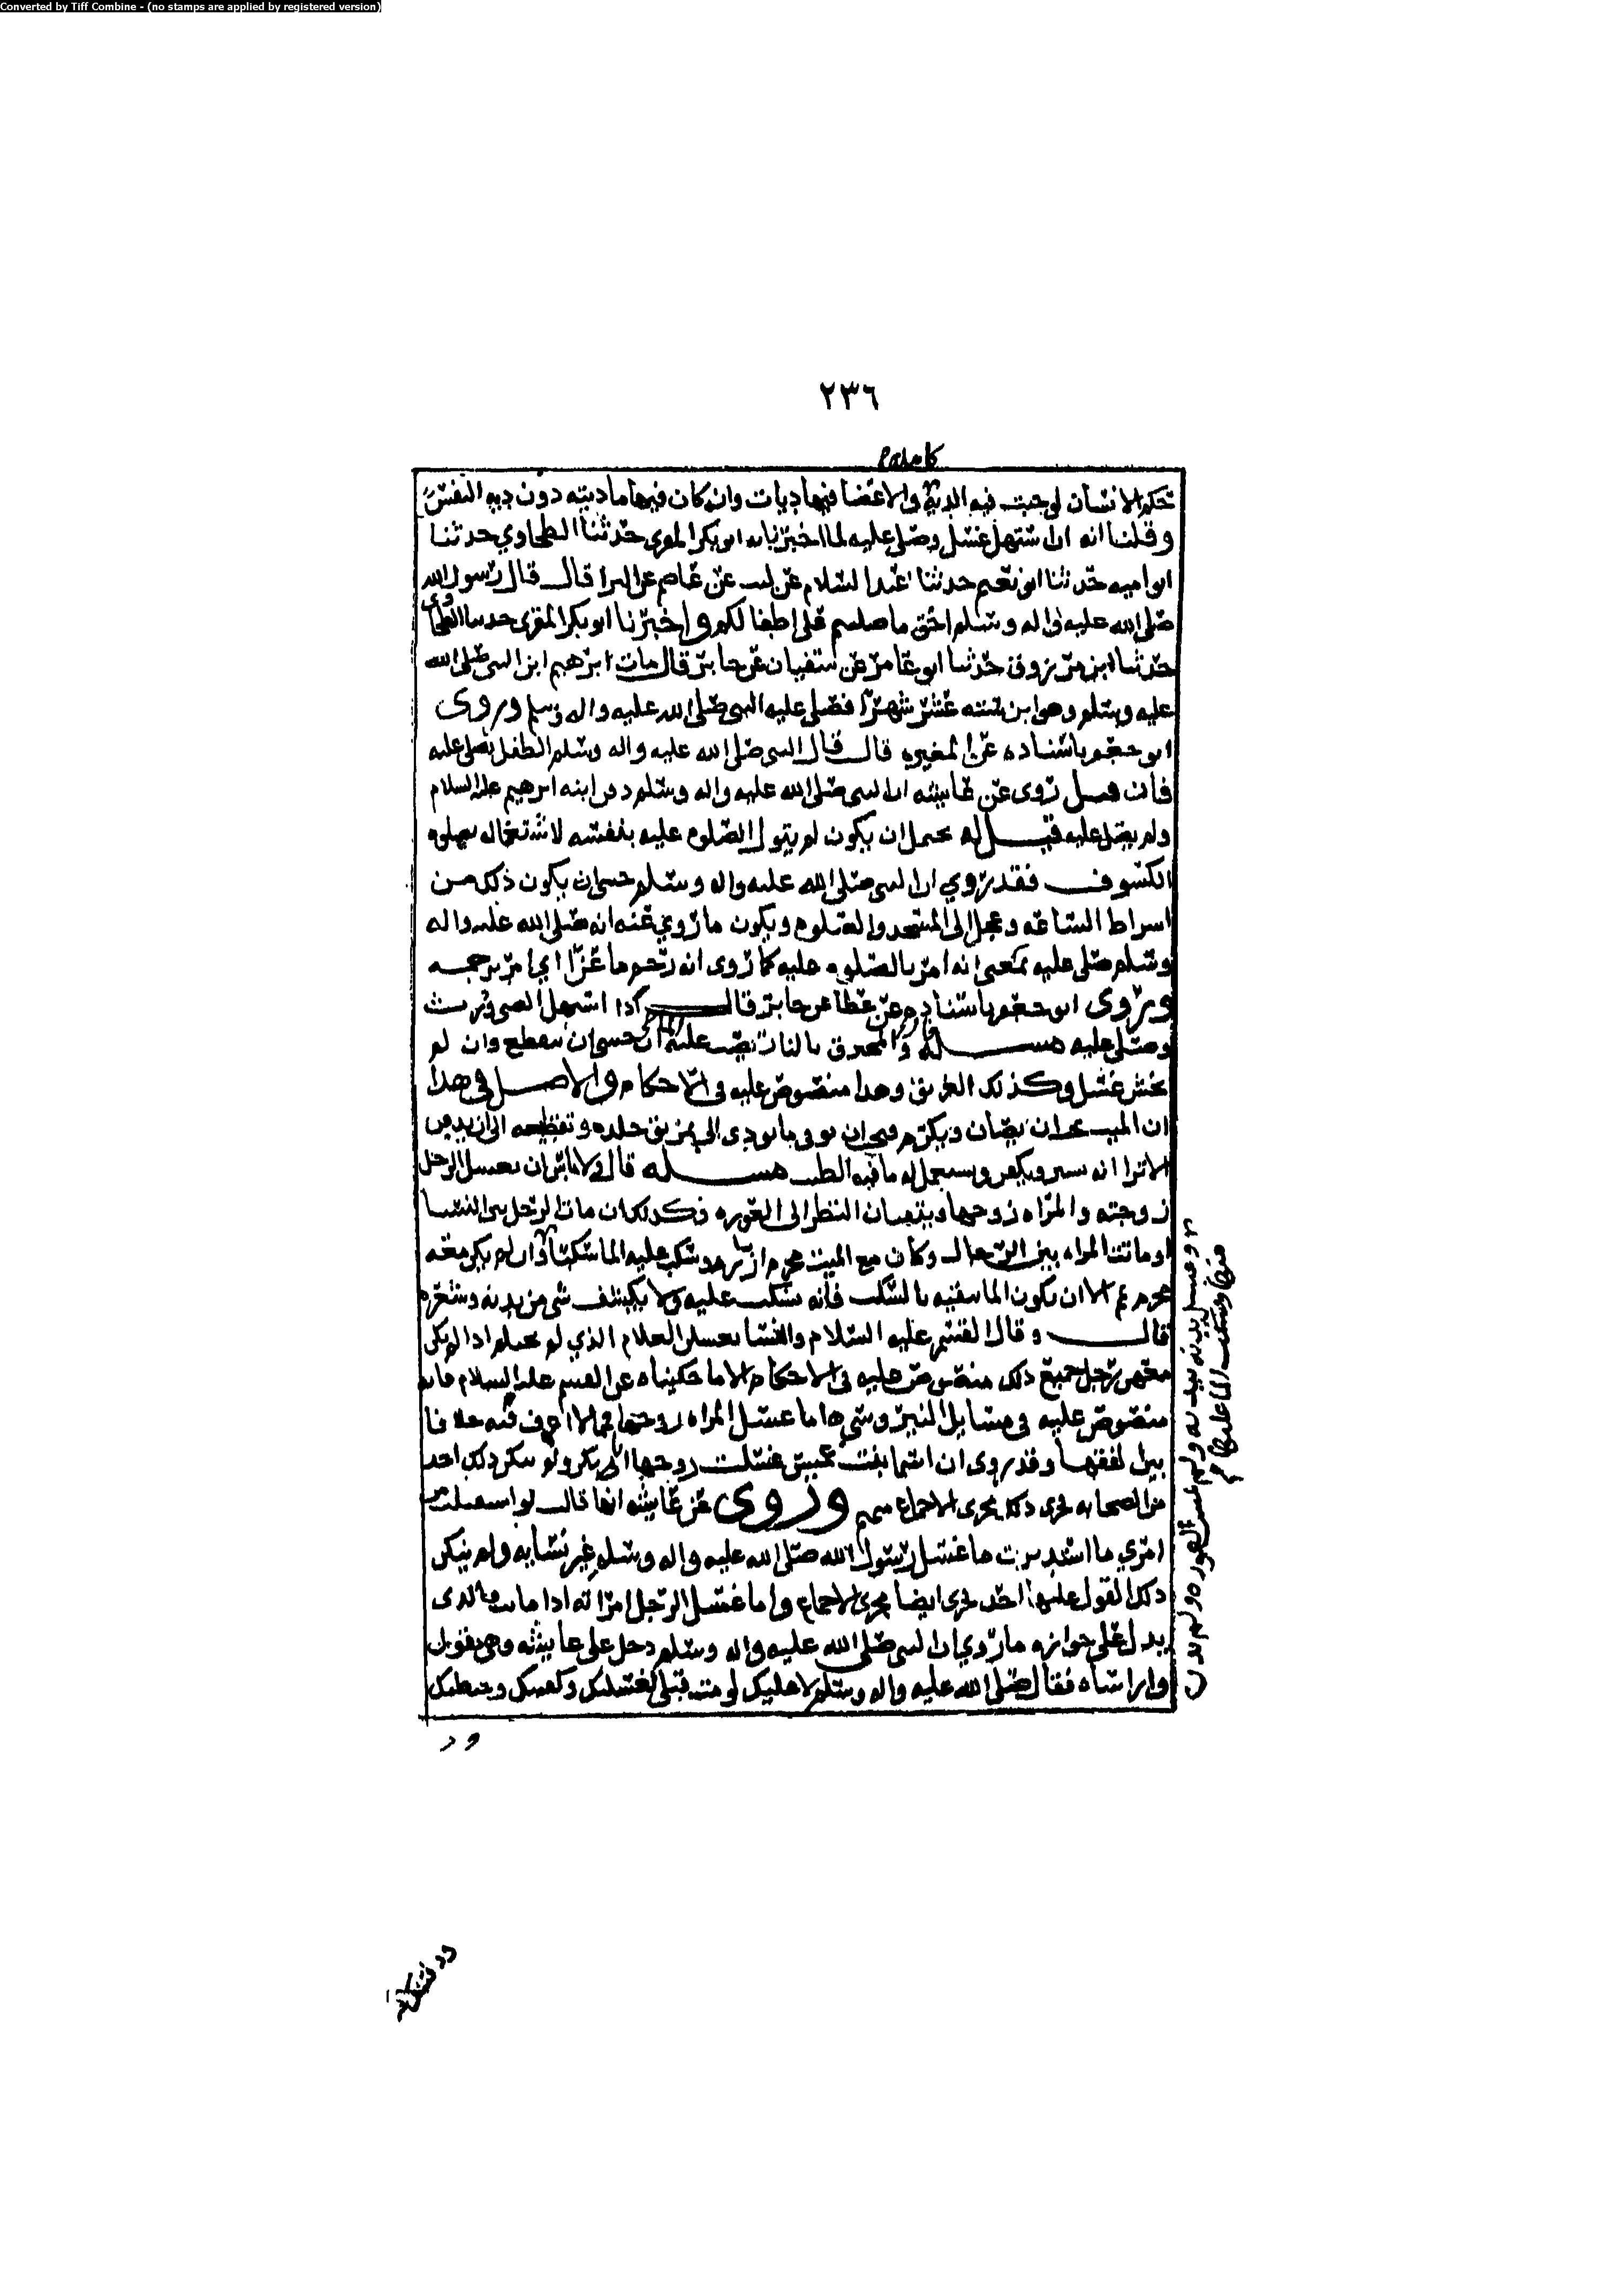 Converted by Tiff Combine - (no stamps are applied by registered version)
٢٣٦
كاملة
حكم الانسان لوجبت فيه الدية والاعضا فيها ديات وان كان فيها ما ديته دون ديه النفس
وقلنا انه ان استهل غسل وصلى عليه لما اخبرنا به ابو بكر المقري حدثنا الطحاوي حدثنا
ابو اميه حدثنا ابو نعيم حدثنا عبد السلام عن ليث عن عاصم عن البرا قال قال رسول الله
صلى الله عليه واله وسلم احق ما صليتم على اطفالكم واخبرنا ابو بكر المقري حدثنا الطحاوي
حدثنا ابن مرزوق حدثنا ابو عامر عن سفيان عن جابر قال مات ابرهيم ابن النبي صلى الله
عليه وسلم وهو ابن ستة عشر شهرا فصلى عليه النبي صلى الله عليه واله وسلم وروى
ابو جعفر باسناده عن المغيره قال قال النبي صلى الله عليه واله وسلم الطفل يصلى عليه
فان قيل روى عن عايشه ان النبي صلى الله عليه واله وسلم دفن ابنه ابرهيم عليه السلام
ولم يصل عليه قيل له يحتمل ان يكون لم يتول الصلوه عليه بنفسه لاشتغاله بصلوه
الكسوف فقد روي ان النبي صلى الله عليه واله وسلم خشي ان يكون ذلك من
اشراط الساعه وعجل الى المسجد والصلوه ويكون ما روي عنه انه صلى الله عليه واله
وسلم صلى عليه بمعنى انه امر بالصلوه عليه كما روى انه رجم ماعزا اي امر برجمه
وروى ابو جعفر باسناده عن عطا عن جابر قال اذا استهل الصبي ورث
وصلى عليه مسله قال والمحرق بالنار يصب عليه الما ان خشي ان يتقطع وان لم
يخش غسل وكذلك الغريق وهذا منصوص عليه في الاحكام والاصل في هذا
ان الميت يجب ان يصان ويكرم فيجب ان يوقى ما يودى الى تمزيق جلده وتفظيعه الى ان يدفن
الا ترا انه يستر ويكفن ويستعمل له ما فيه الطيب مسله قال ولا باس ان يغسل الرجل
زوجته والمراه زوجها ويتقيان النظر الى العوره وكذلك ان مات الرجل بين النسا
او ماتت المراه بين الرجال وكان مع الميت محرم ازر وسكب عليه الما سكبا وان لم يكن معه
محرم يمم الا ان يكون الما ينقيه بالسكب فانه يسكب عليه ولا يكشف شي من بدنه وشعره
قال وقال القسم عليه السلام والنسا يغسلن الغلام الذي لم يحتلم اذا لم يكن
معهن رجل جميع ذلك منصوص عليه في الاحكام الا ما حكيناه عن القسم عليه السلام فانه
منصوص عليه في مسايل النيروسي اما غسل المراه زوجها فمما لا اعرف فيه خلافا
بين الفقها وقد روى ان اسما بنت عميس غسلت زوجها ابا بكر ولم ينكر ذلك احد
من الصحابه فجرى ذلك مجرى الاجماع منهم وروى عن عايشه انها قالت لو استقبلت من
امري ما استدبرت ما غسل رسول الله صلى الله عليه واله وسلم غير نسايه ولم ينكر
ذلك القول عليها احد فجرى ايضا مجرى الاجماع واما غسل الرجل امراته اذا ماتت فالذى
يدل على جوازه ما روي ان النبي صلى الله عليه واله وسلم دخل على عايشه وهي تقول
وا راساه فقال صلى الله عليه واله وسلم لا عليك لو مت قبلي لغسلتك وكفنتك وحنطتك
ود